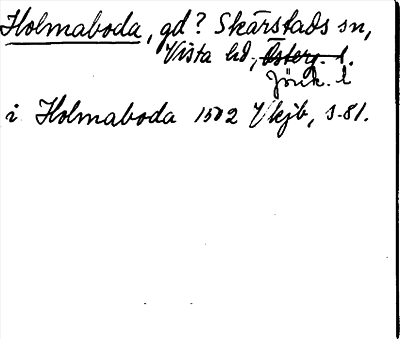 Holmaboda, gd? Skärstads sn,
Vista hd, Österg. l.
Jönk. l
i Holmaboda 1502 Vkjb, s. 81.